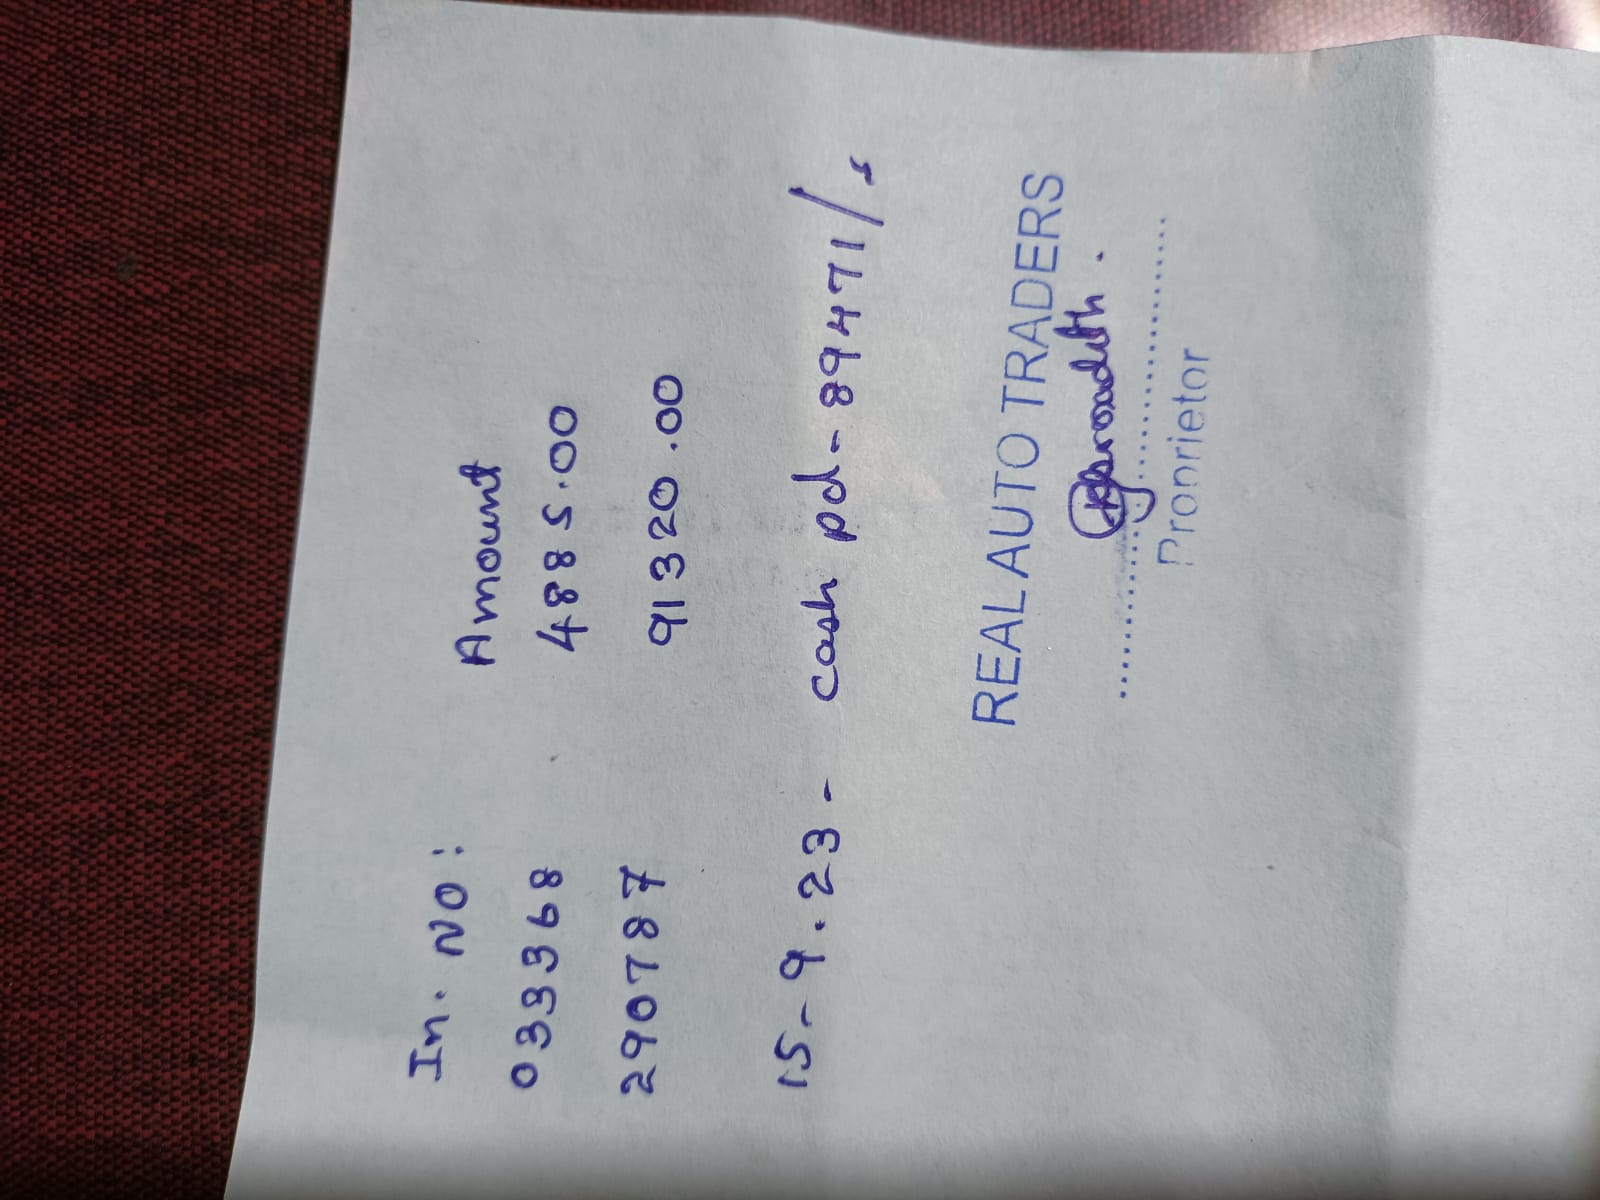 In. NO: Amount
033368 4885.00
290787 91320.00
15-9.23- cash pd-89471/s
REAL AUTO TRADERS
Proprietor